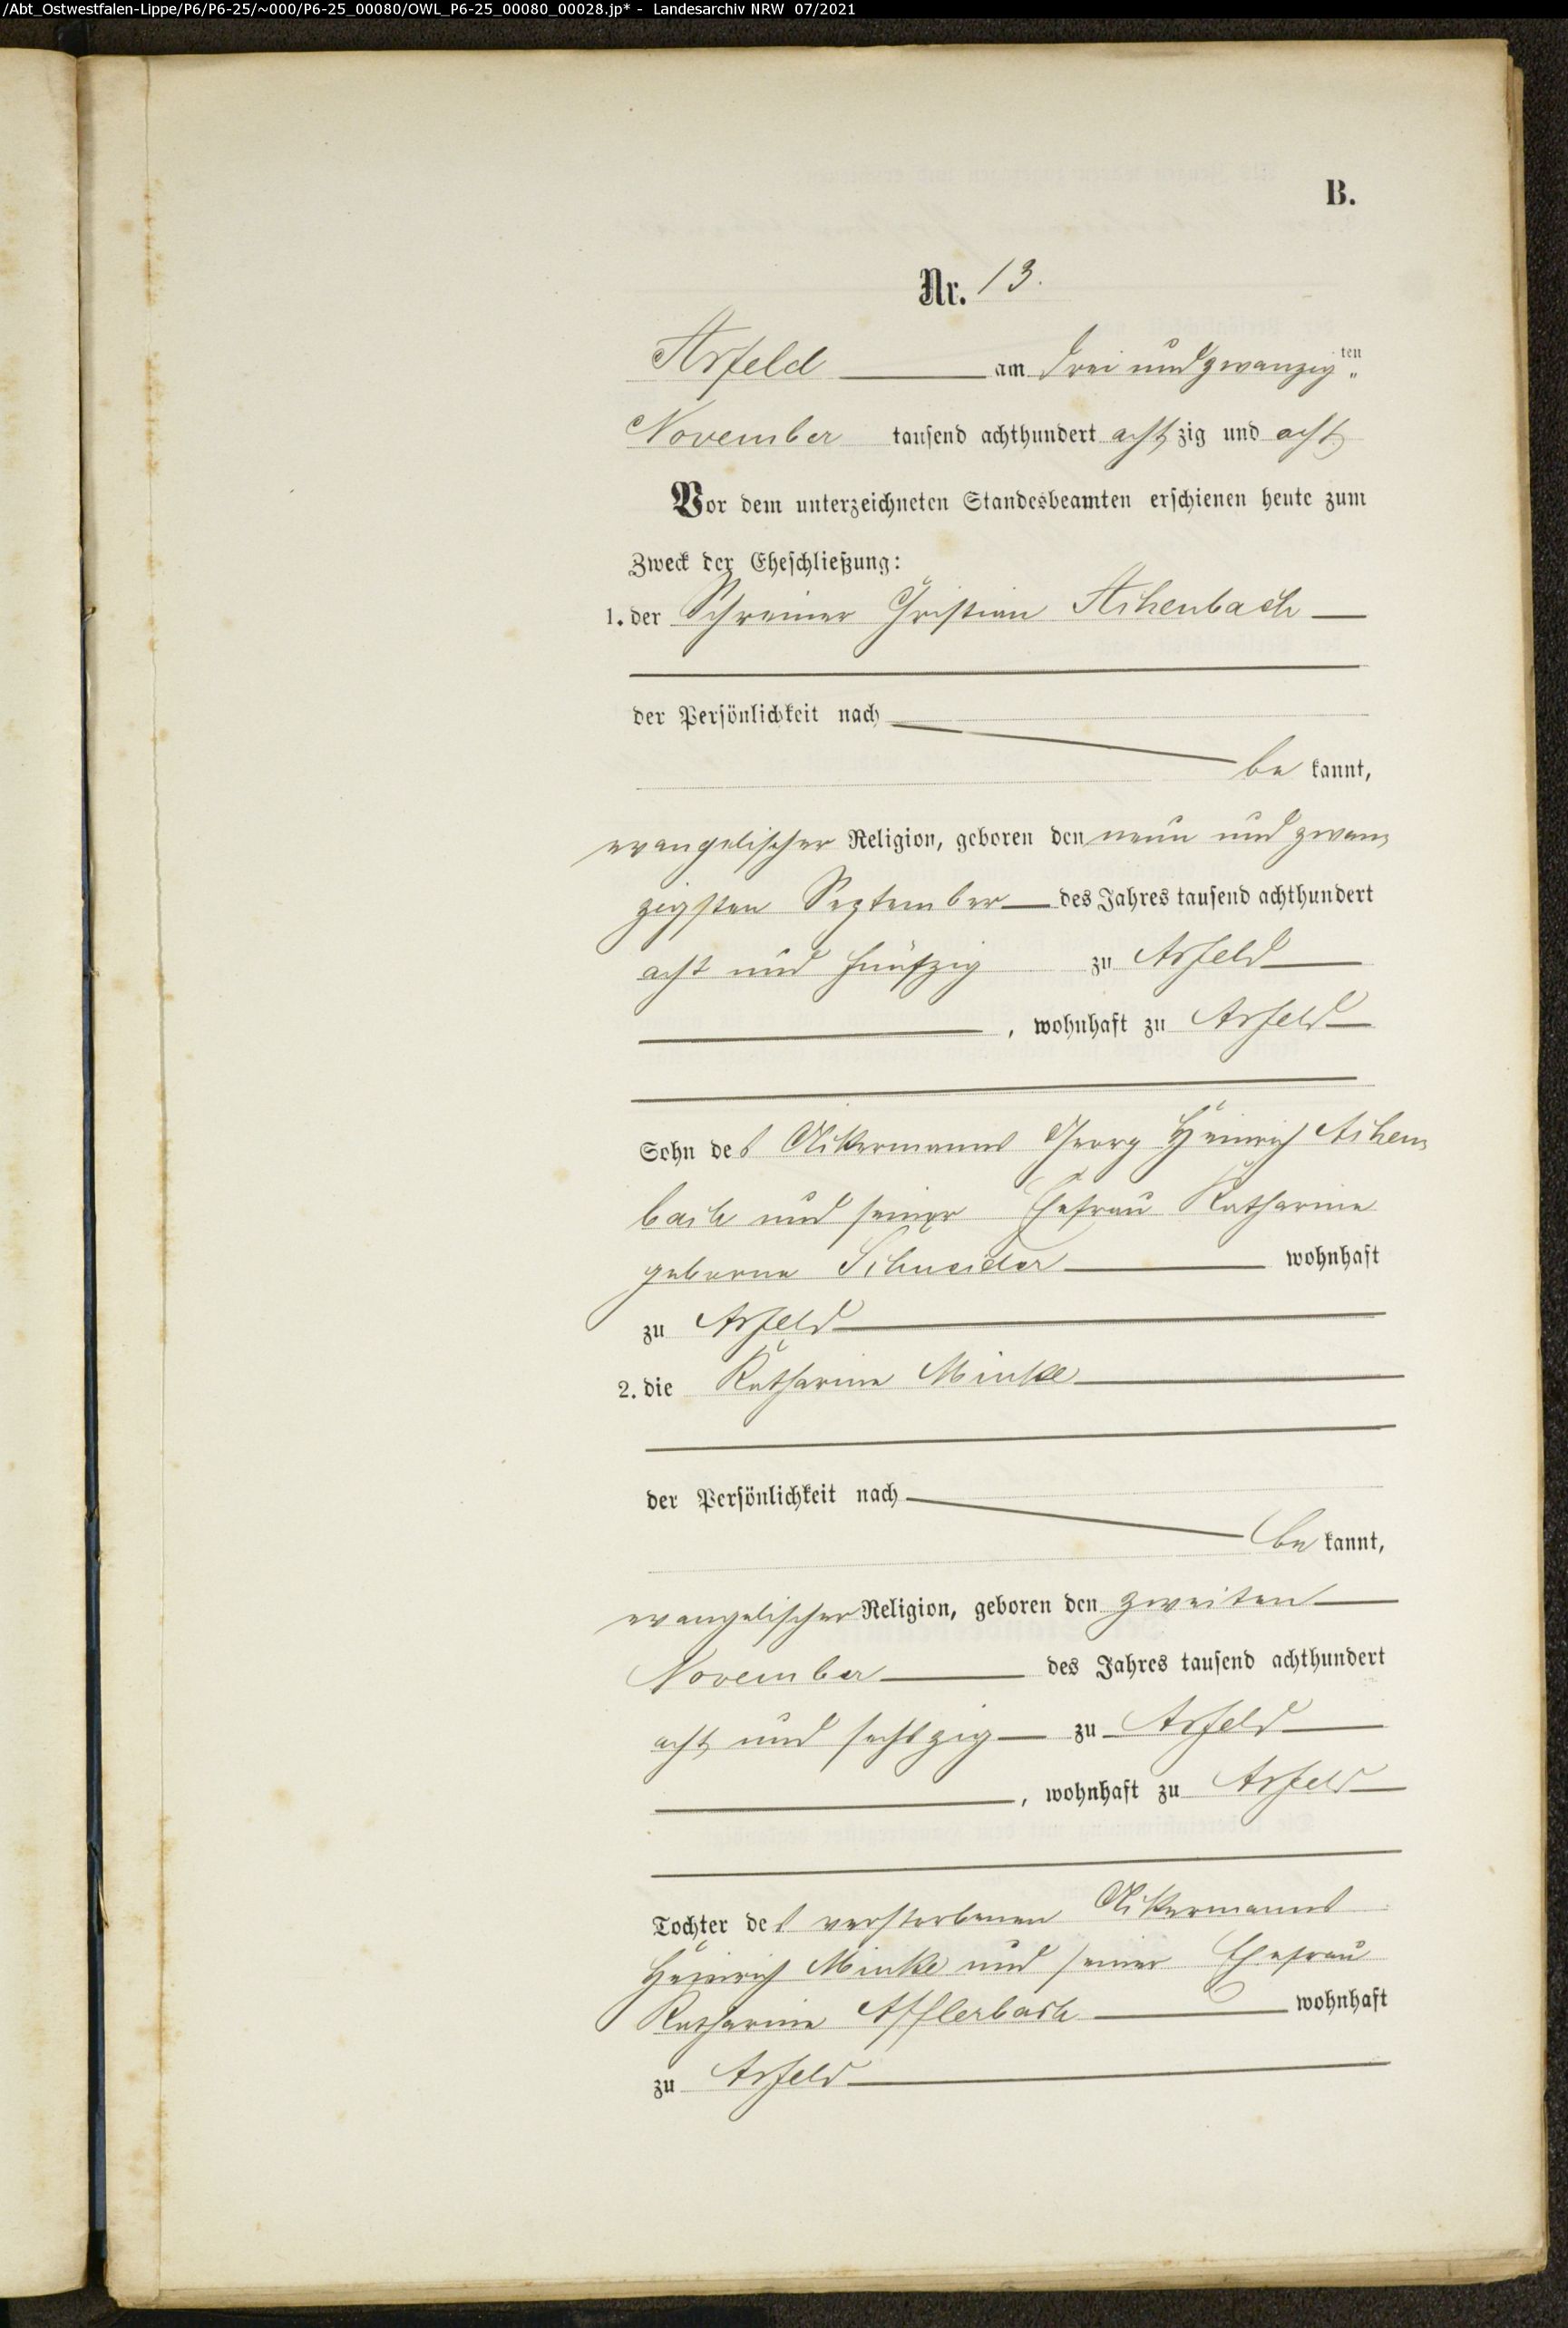 /Abt_Ostwestfalen-Lippe/P6/P6-25/~000/P6-25_00080/OWL_P6-25_00080_00028.jp* - Landesarchiv NRW 07/2021
B.
Nr. 13.
Arfeld am drei und zwanzig ten
November tausend achthundert acht zig und acht
Vor dem unterzeichneten Standesbeamten erschienen heute zum
Zweck der Eheschließung:
1. der Schreiner Christian Achenbach
der Persönlichkeit nach
be kannt,
evangelischer Religion, geboren den neun und zwan-
zigsten September des Jahres tausend achthundert
acht und fünfzig zu Arfeld
, wohnhaft zu Arfeld
Sohn des Ackermanns Georg Heinrich Achen-
bach und seiner Ehefrau Katharine
geborne Schneider wohnhaft
zu Arfeld
2. die Katharine Minke
der Persönlichkeit nach
be kannt,
evangelischer Religion, geboren den zweiten
November des Jahres tausend achthundert
acht und sechszig zu Arfeld
, wohnhaft zu Arfeld
Tochter des verstorbenen Ackermanns
Heinrich Minke und seiner Ehefrau
Katharine Afflerbach wohnhaft
zu Arfeld